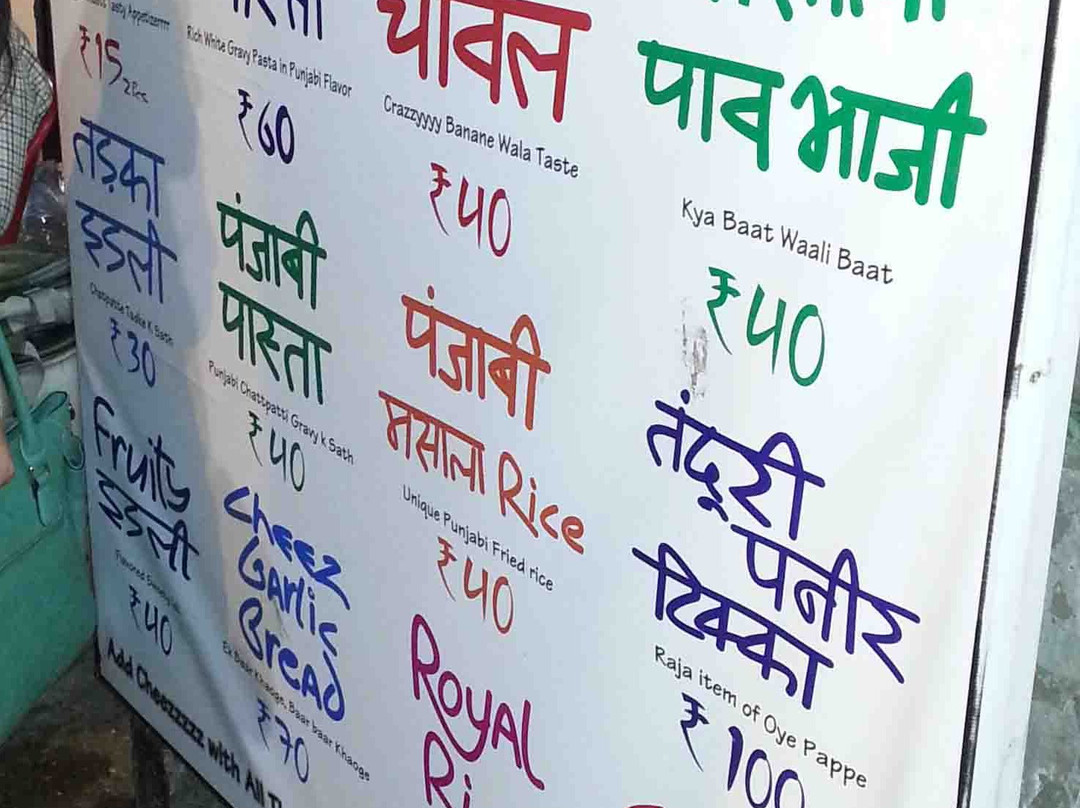 Tasty Appetizerrrr
₹15 2Pcs
तड़का
इडली
Chatpatte Tadke K Sath
₹30
Fruits
इडली
₹40
Add Cheezzzzz with All
Rich White Gravy Pasta in Punjabi Flavor
₹60
पंजाबी
पास्ता
Punjabi Chattpatti Gravy k Sath
₹40
Cheez
Garlic
Bread
Ek Baar Khaoge, Baar baar Khaoge
₹70
चावल
Crazzyyyy Banane Wala Taste
₹40
पंजाबी
मसाला Rice
Unique Punjabi Fried rice
₹40
Royal
Ri
पाव भाजी
Kya Baat Waali Baat
₹40
तंदूरी
पनीर
टिक्का
Raja item of Oye Pappe
₹100